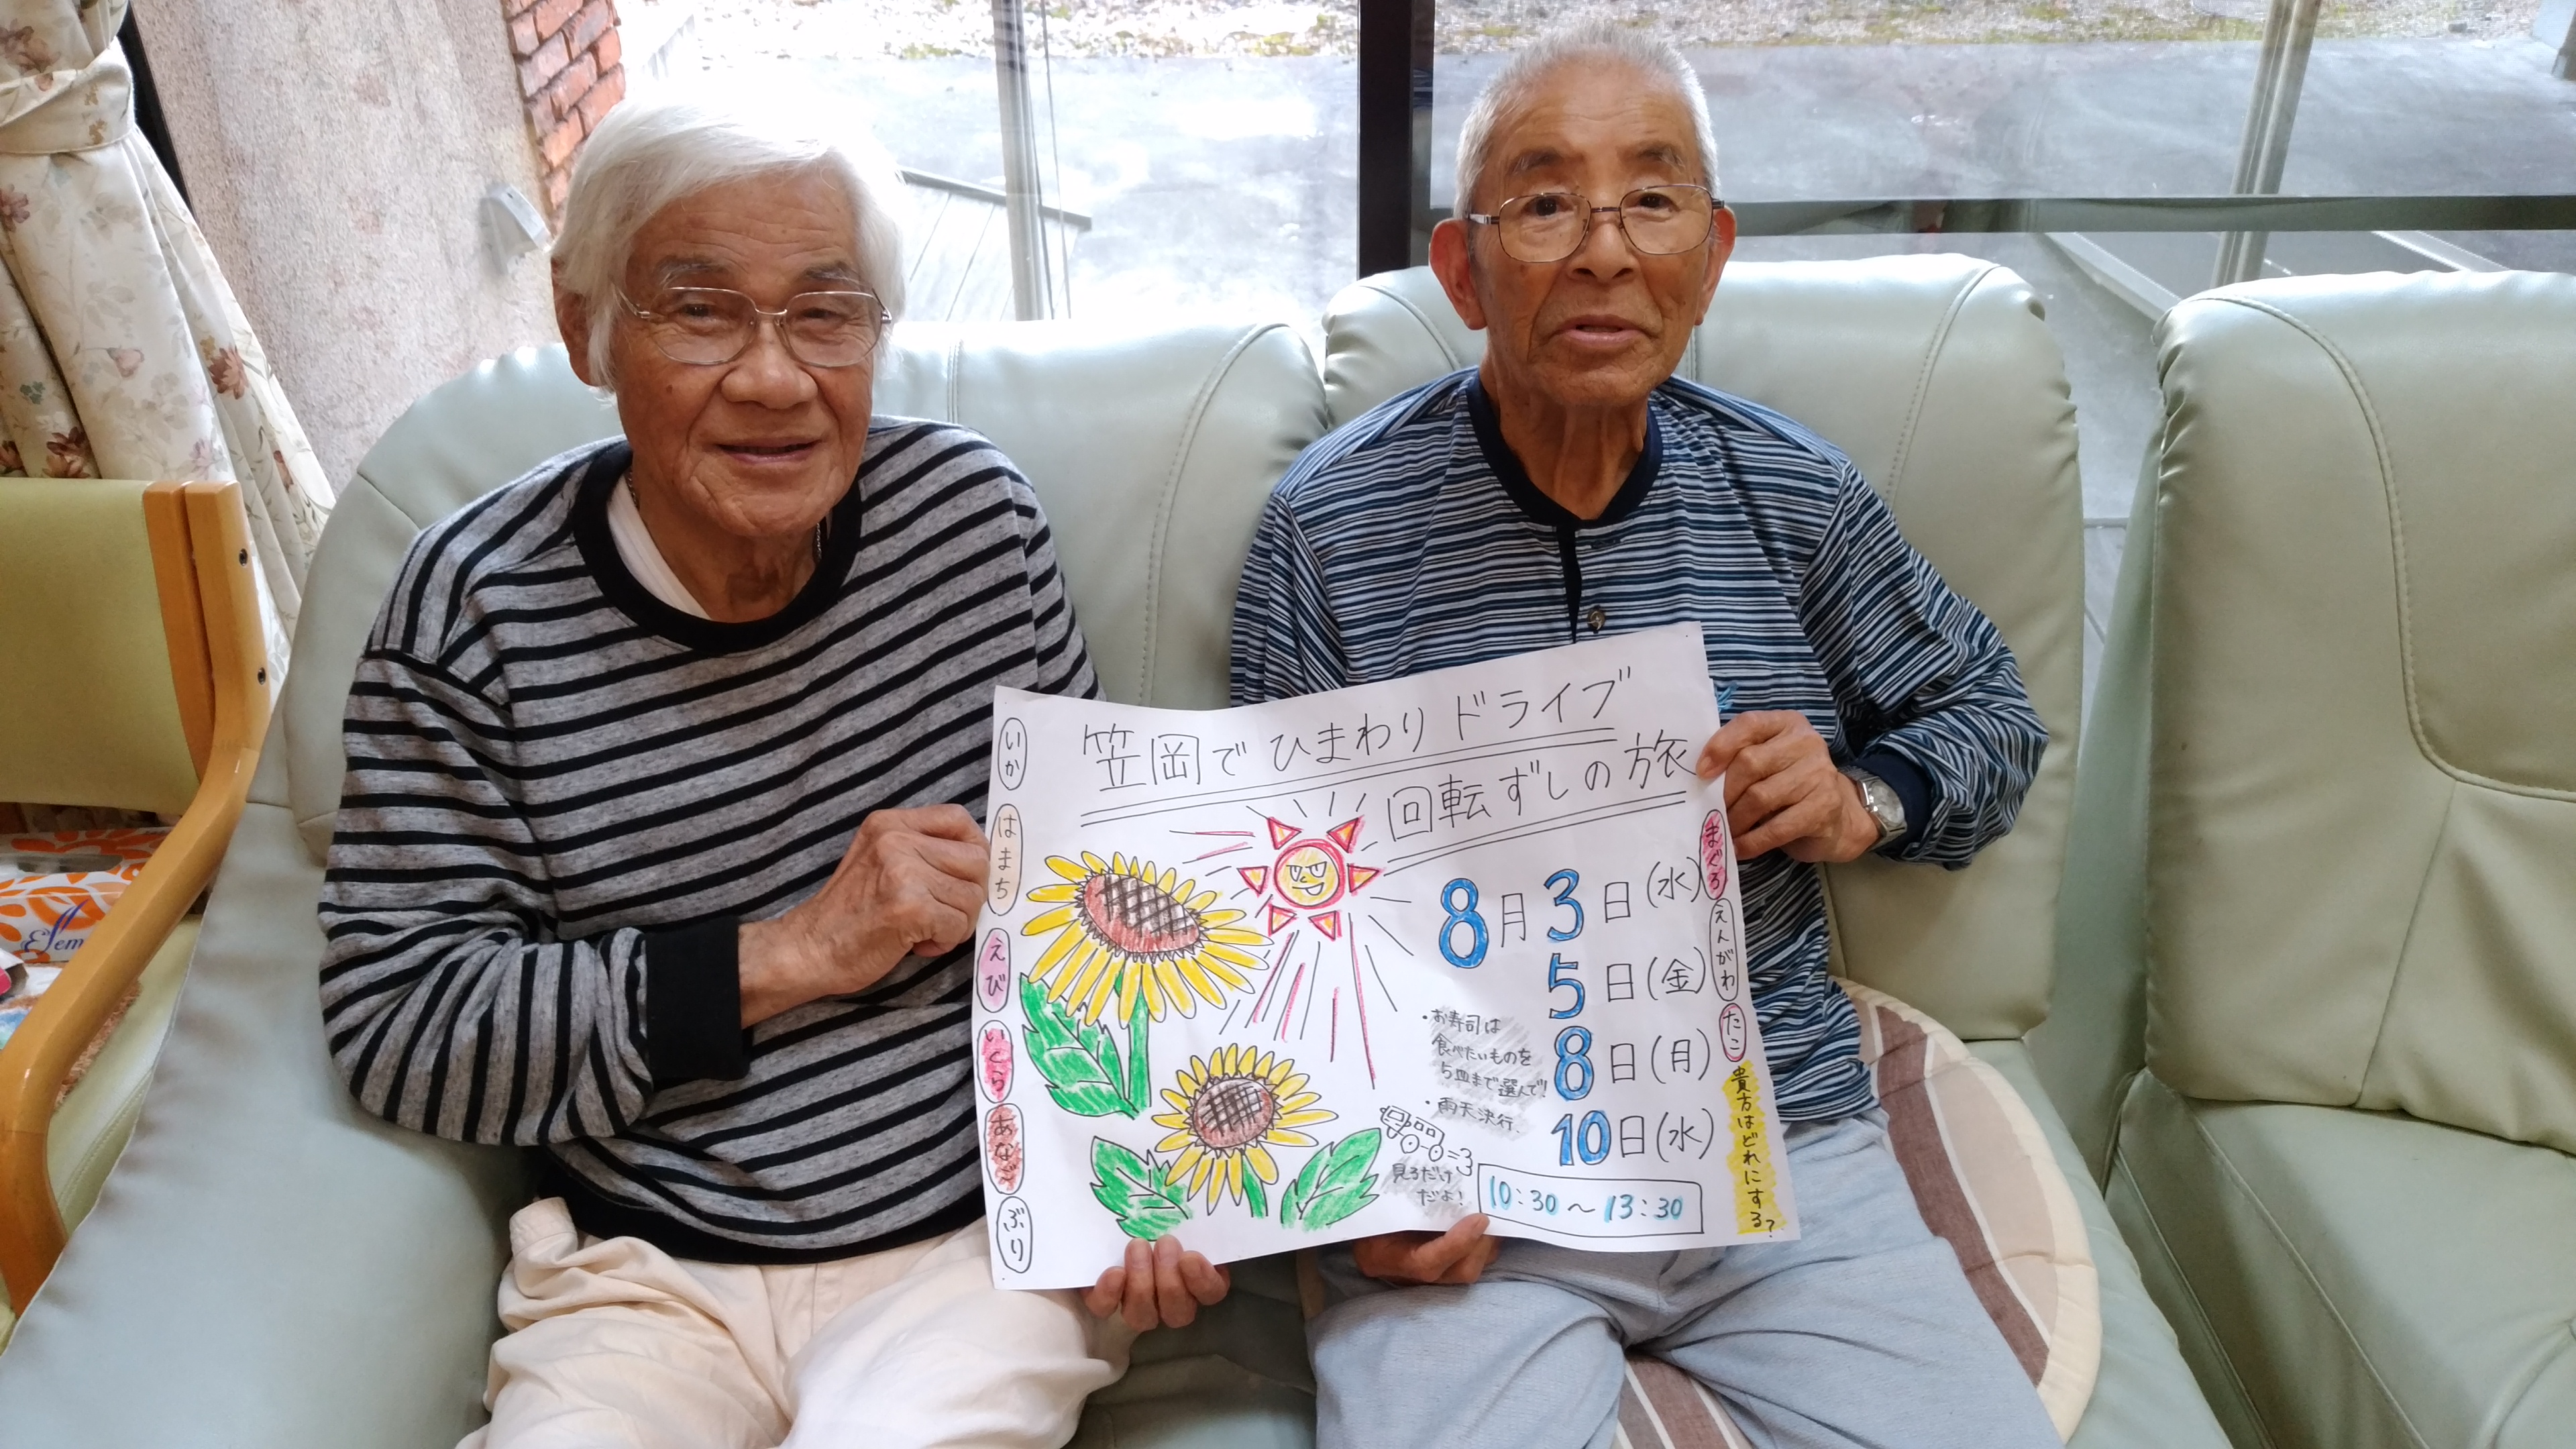 笠岡でひまわりドライブ
回転ずしの旅
いか
はまち
えび
いくら
あなご
ぶり
8月3日(水)
5日(金)
8日(月)
10日(水)
・お寿司は
食べたいものを
5皿まで選んで!
・雨天決行、
見るだけ
だよ!
10:30〜13:30
まぐろ
えんがわ
たこ
貴方はどれにする?